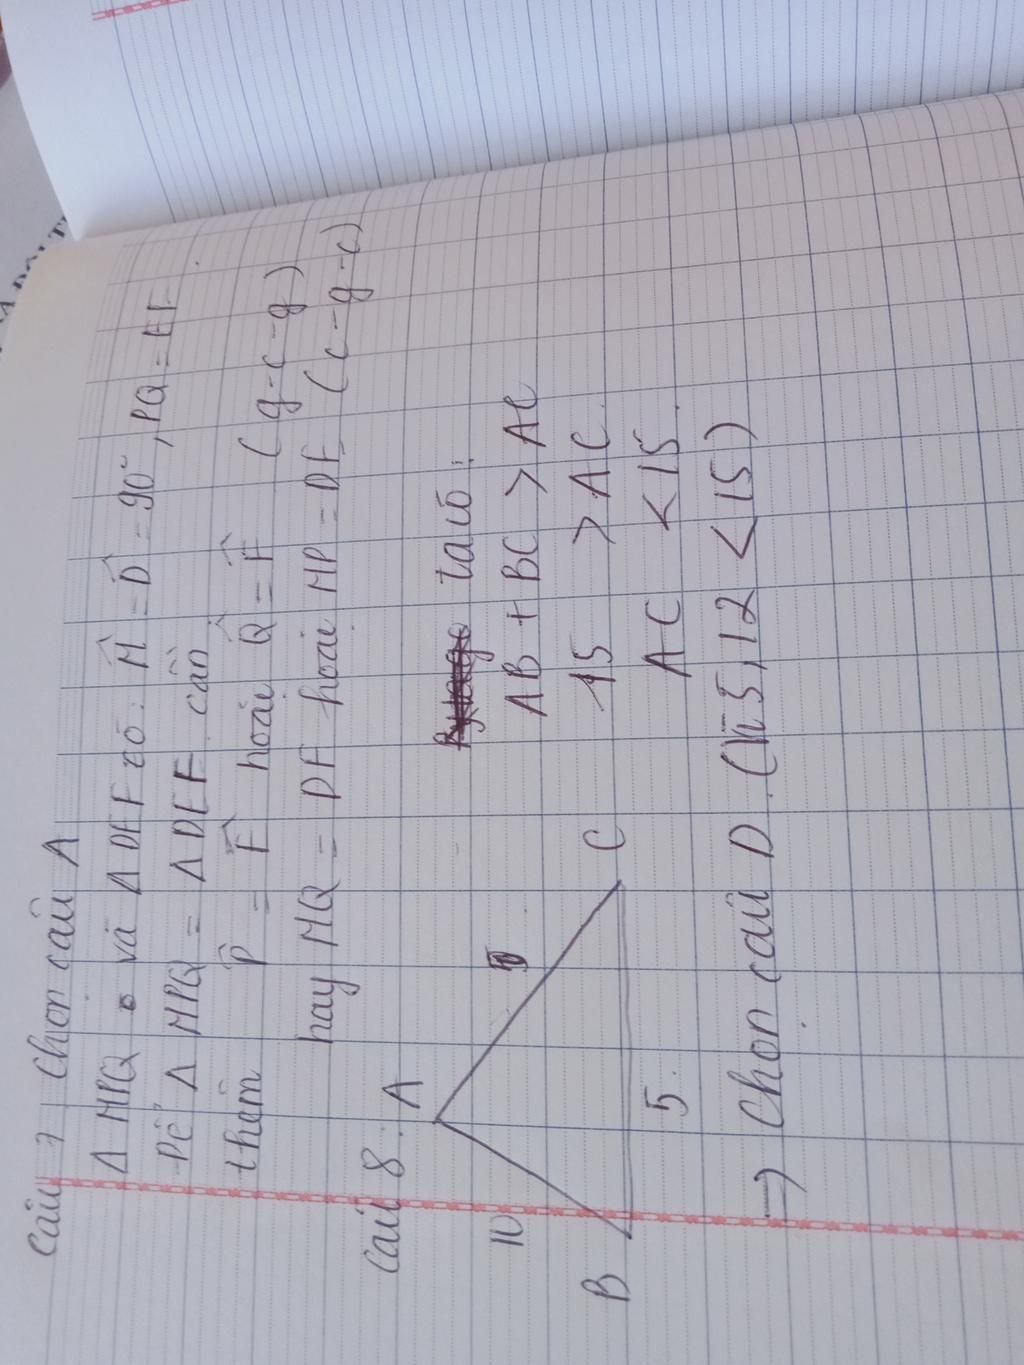 Câu 7 Chọn câu A
Δ MPQ và Δ DEF có: M̂ = D̂ = 90°, PQ = EF.
Để Δ MPQ = Δ DEF cần
thêm P̂ = Ê hoặc Q̂ = F̂ (g-c-g)
hay MQ = DF hoặc MP = DE (c-g-c)
Câu 8: A
ta có:
10
AB + BC > AC
B C 15 > AC
5. AC < 15.
=> Chọn câu D. (Vì 5,12 < 15)